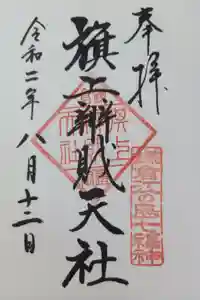 奉拝
旗上辨財天社
令和二年八月十二日
鎌倉江の島七福神